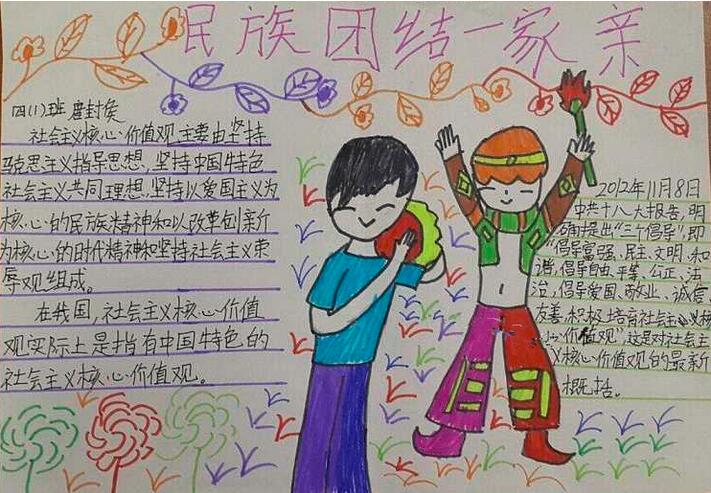 民族团结一家亲
四(1)班 封侯
社会主义核心价值观主要由坚持
马克思主义指导思想,坚持中国特色
社会主义共同理想,坚持以爱国主义为
核心的民族精神和以改革创新
为核心的时代精神和坚持社会主义荣
辱观组成。
在我国,社会主义核心价值
观实际上是指有中国特色的
社会主义核心价值观。
2012年11月8日
中共十八大报告,明
确提出"三个倡导",即
"倡导富强、民主、文明、和
谐,倡导自由、平等、公正、法
治,倡导爱国、敬业、诚信、
友善,积极培育社会主义核
心价值观",这是对社会主
义核心价值观的最新
概括。